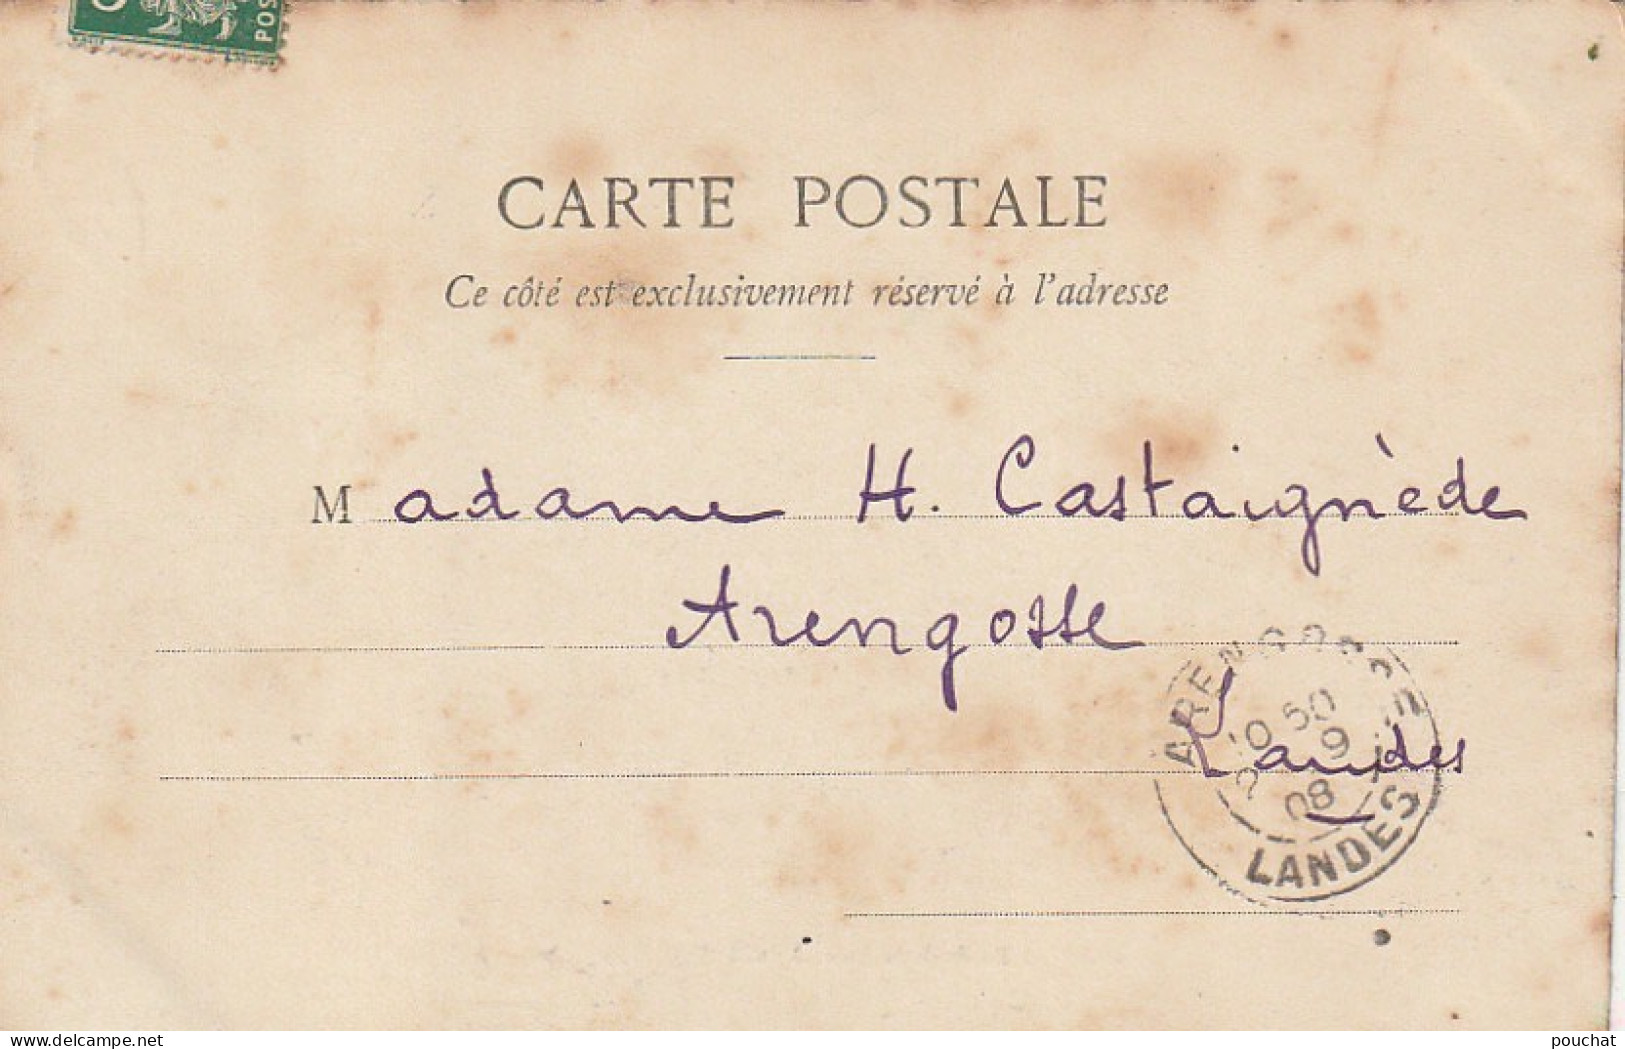 POS
CARTE POSTALE
Ce côté est exclusivement réservé à l'adresse
Madame H. Castaignède
Arengosse
Landes
ARENGOSSE
10 50
2 9
08
LANDES
delcampe.net
pouchat